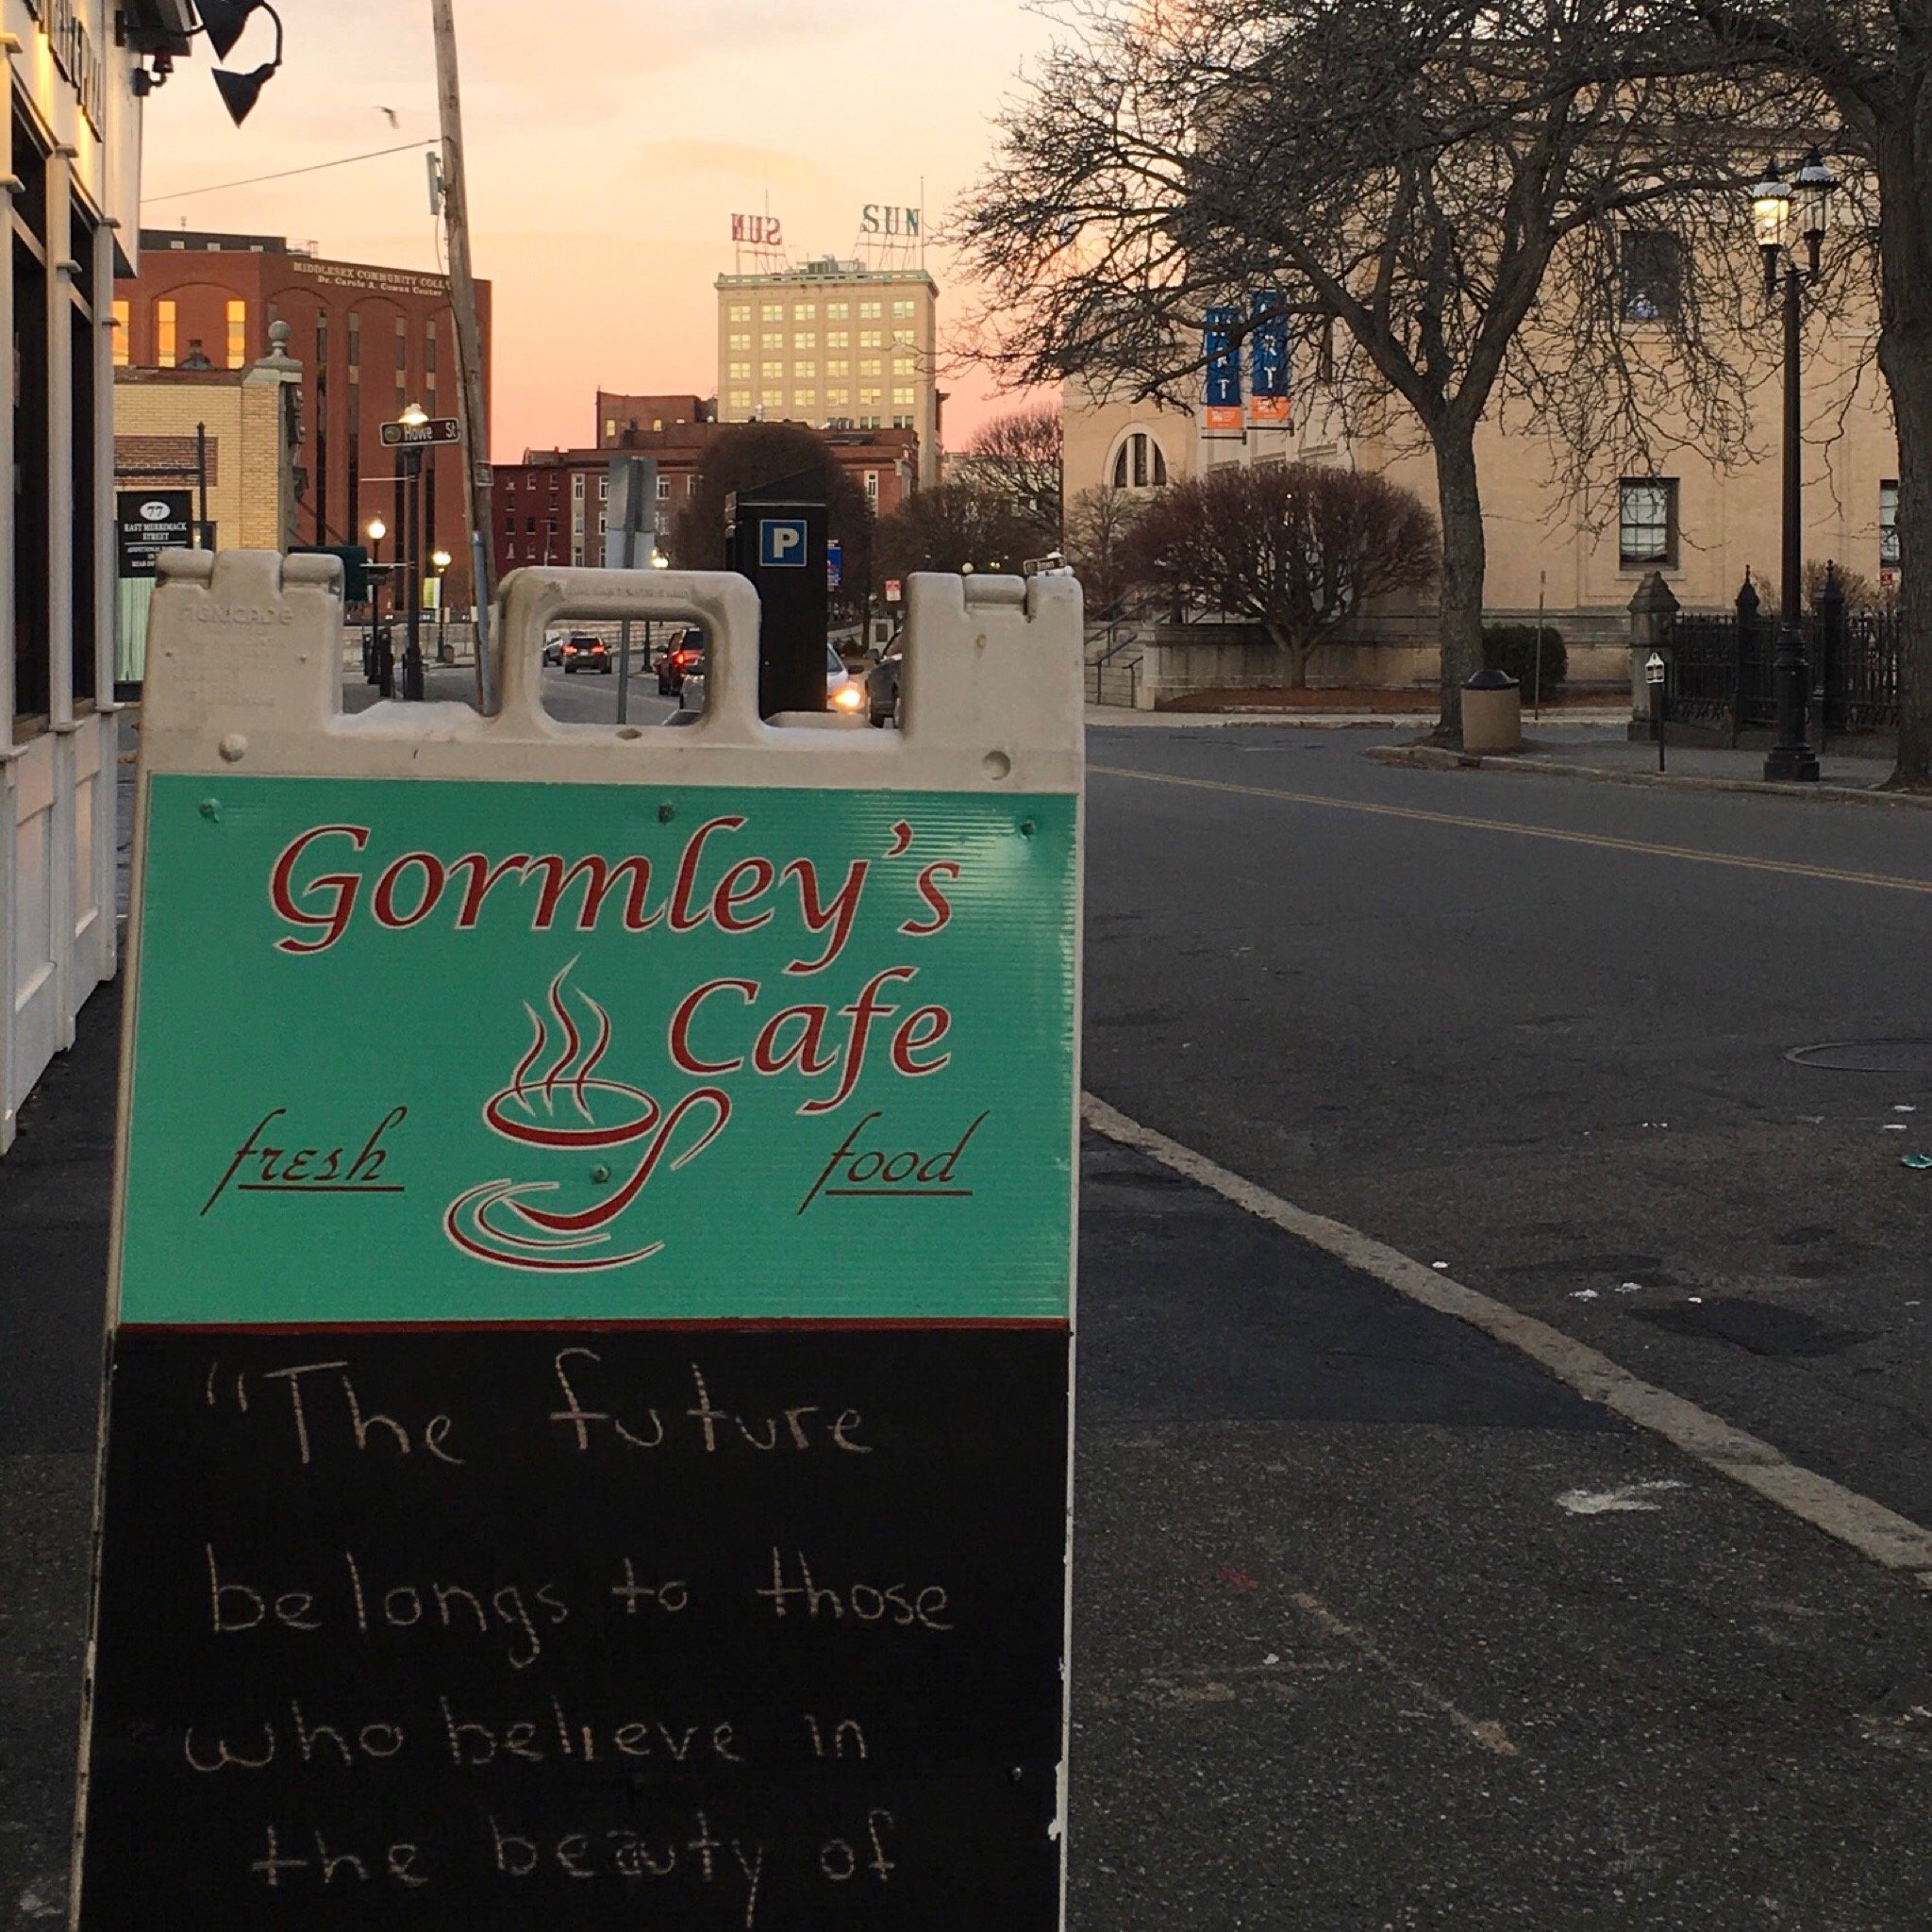 NUS
SUN
MIDDLESEX COMMUNITY COLL
Dr. Carole A. Cowan Center
Howe St
77
EAST MERRIMACK
STREET
P
ART
ART
SIGNICADE
Gormley's
Cafe
fresh food
"The future
belongs to those
who believe in
the beauty of